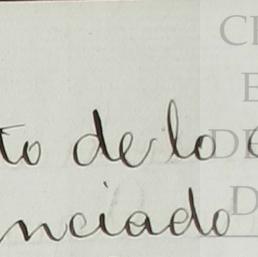 to de lo
nciado